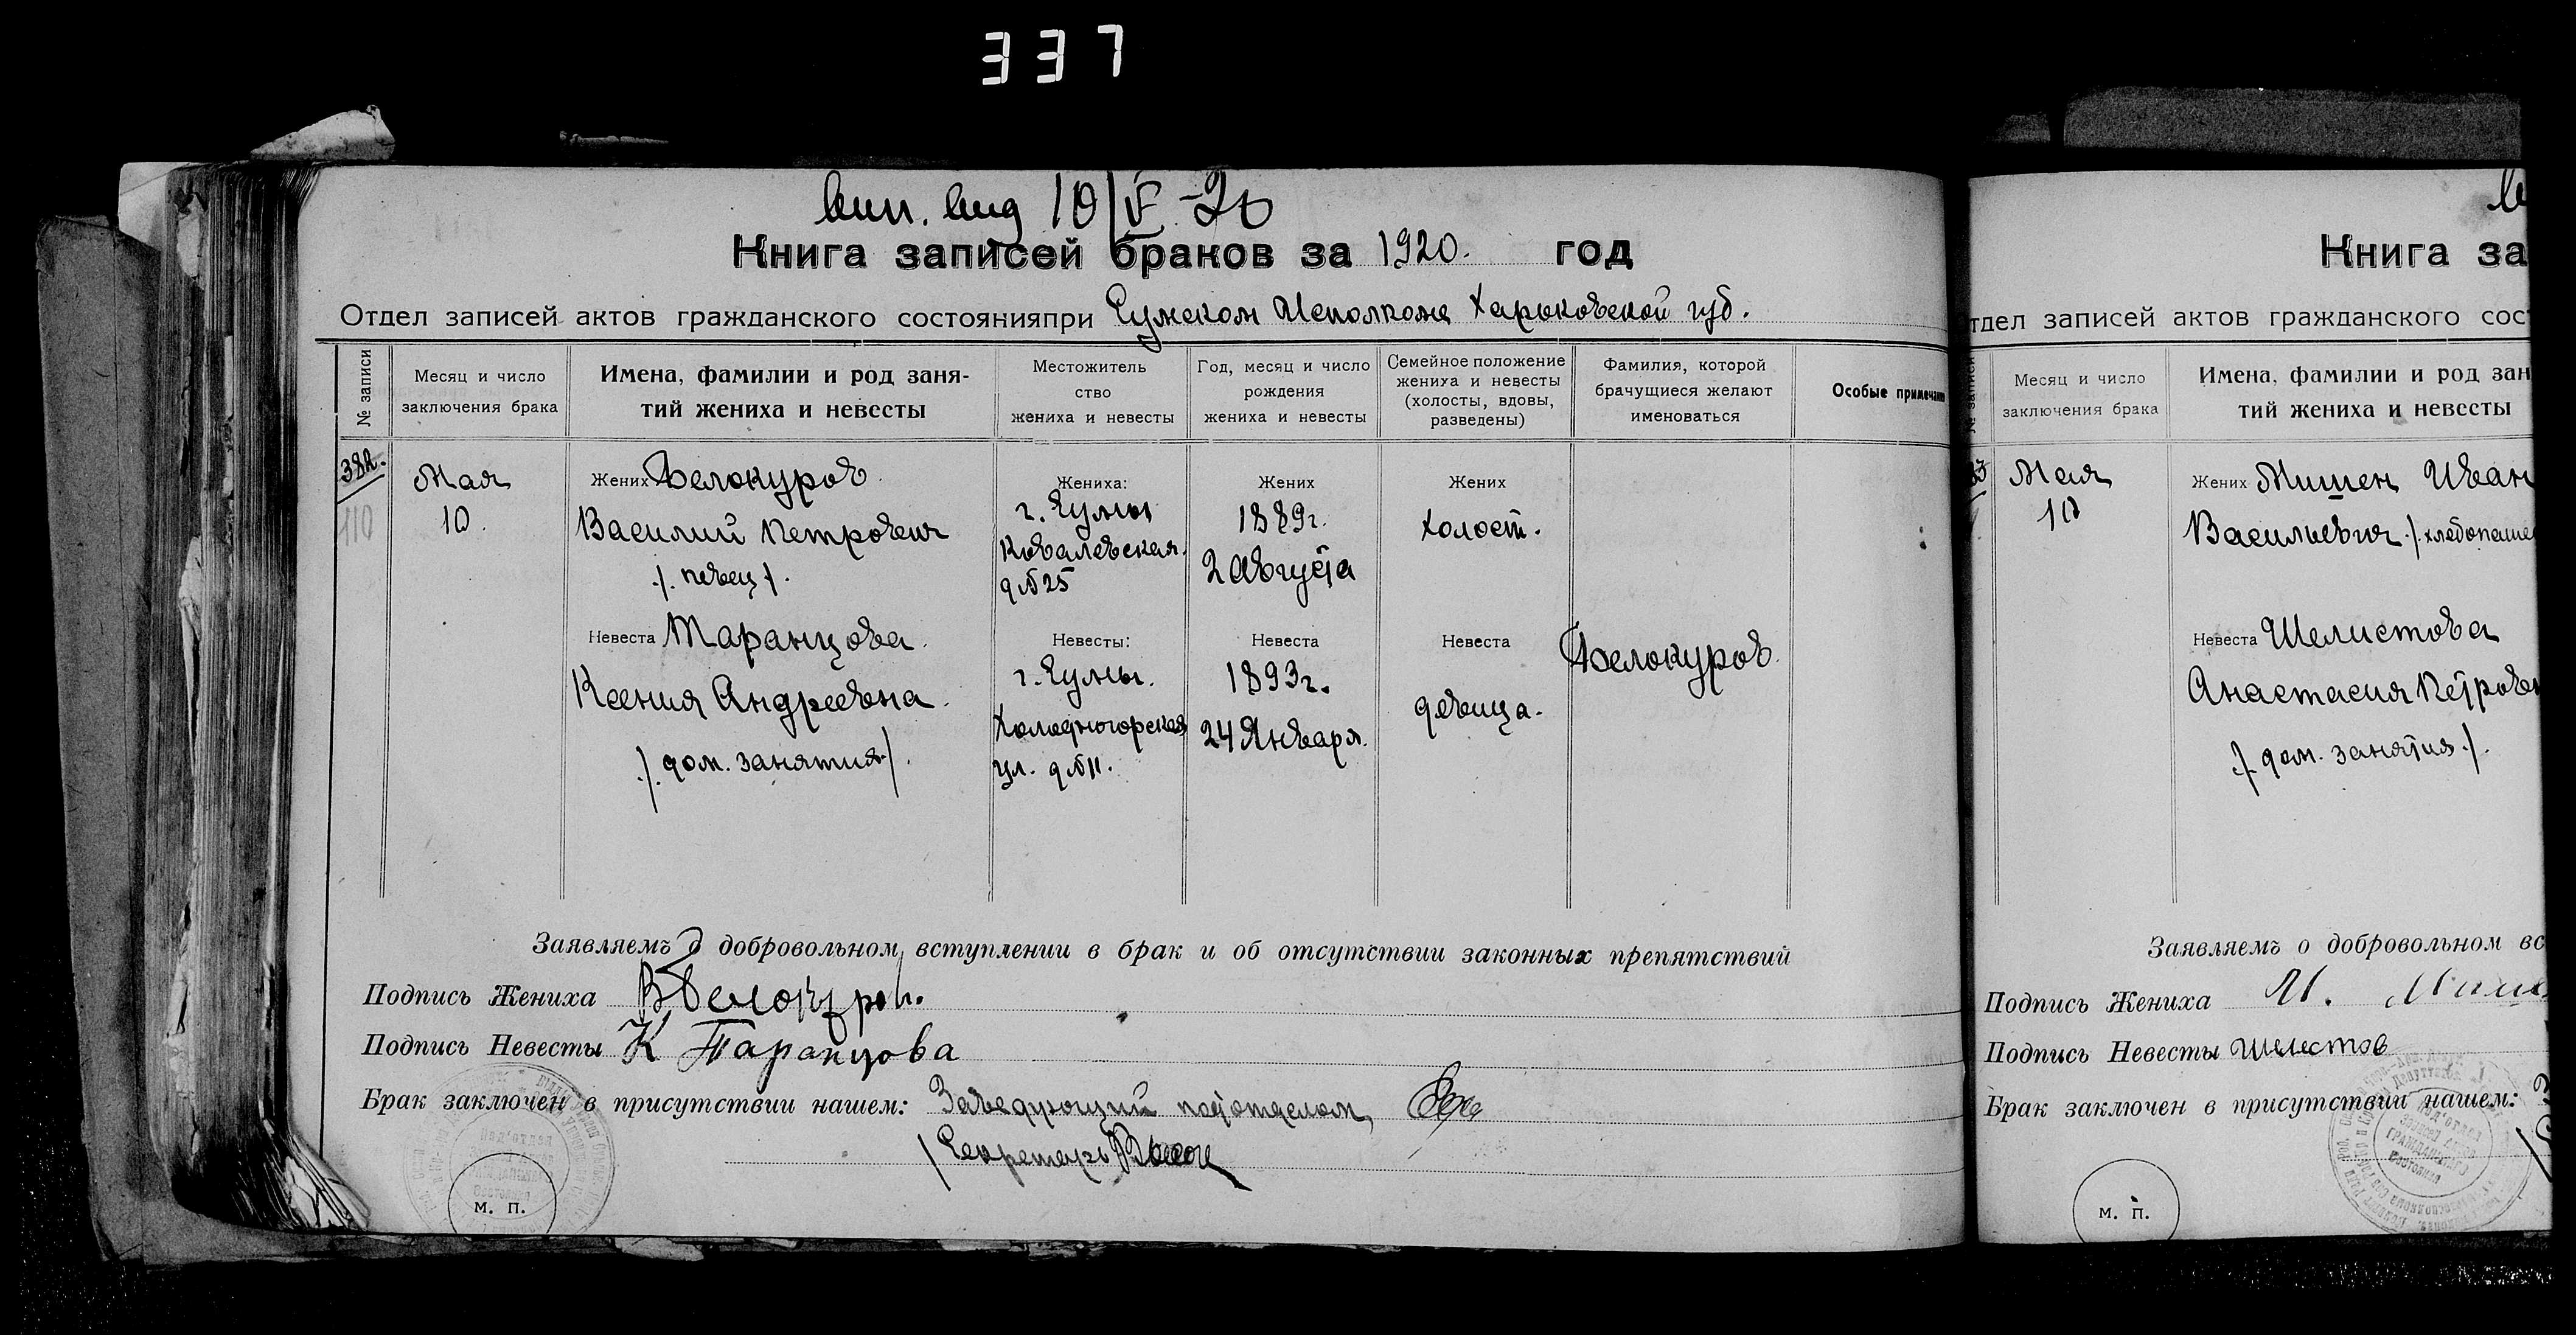 337
вып. вид 10/V-20
Книга записей браков за 1920. год
Отдел записей актов гражданского состоянияпри Сумском Исполкоме Харьковской губ.
№ записи
Месяц и число
заключения брака
Имена, фамилии и род заня-
тий жениха и невесты
Местожитель
ство
жениха и невесты
Год, месяц и число
рождения
жениха и невесты
Семейное положение
жениха и невесты
(холосты, вдовы,
разведены)
Фамилия, которой
брачущиеся желают
именоваться
Особые примечан
382.
110
Мая
10.
Жених Белокуров
Василий Петрович
/. певец /.
Невеста Таранцова.
Ксения Андреевна.
/. дом. занятия /.
Жениха:
г. Сумы
Ковалевская.
д №25
Невесты:
г. Сумы.
Холодногорская
ул. д №11.
Жених
1889г.
2 Августа
Невеста
1893г.
24 Января.
Жених
холост.
Невеста
девица.
Белокуров.
Заявляемъ о добровольном вступлении в брак и об отсутствии законных препятствий
Подпись Жениха В Белокуров.
Подпись Невесты К Таранцова
Брак заключен в присутствии нашем: Заведующий подотделом
/ Секретарь
м. п.
Книга за
тдел записей актов гражданского сос
№ записи
83
Месяц и число
заключения брака
Имена, фамилии и род зан
тий жениха и невесты
Мая
10
Жених Мишен Иван
Васильевич /. хлебопаше
Невеста Шелистова
Анастасия Петровн
/. дом. занятия /.
Заявляемъ о добровольном вс
Подпись Жениха И. Мише
Подпись Невесты Шелестов
Брак заключен в присутствии нашем: З
под'отдел
записей актов
ГРАЖДАНСКОГО
состояния
м. п.